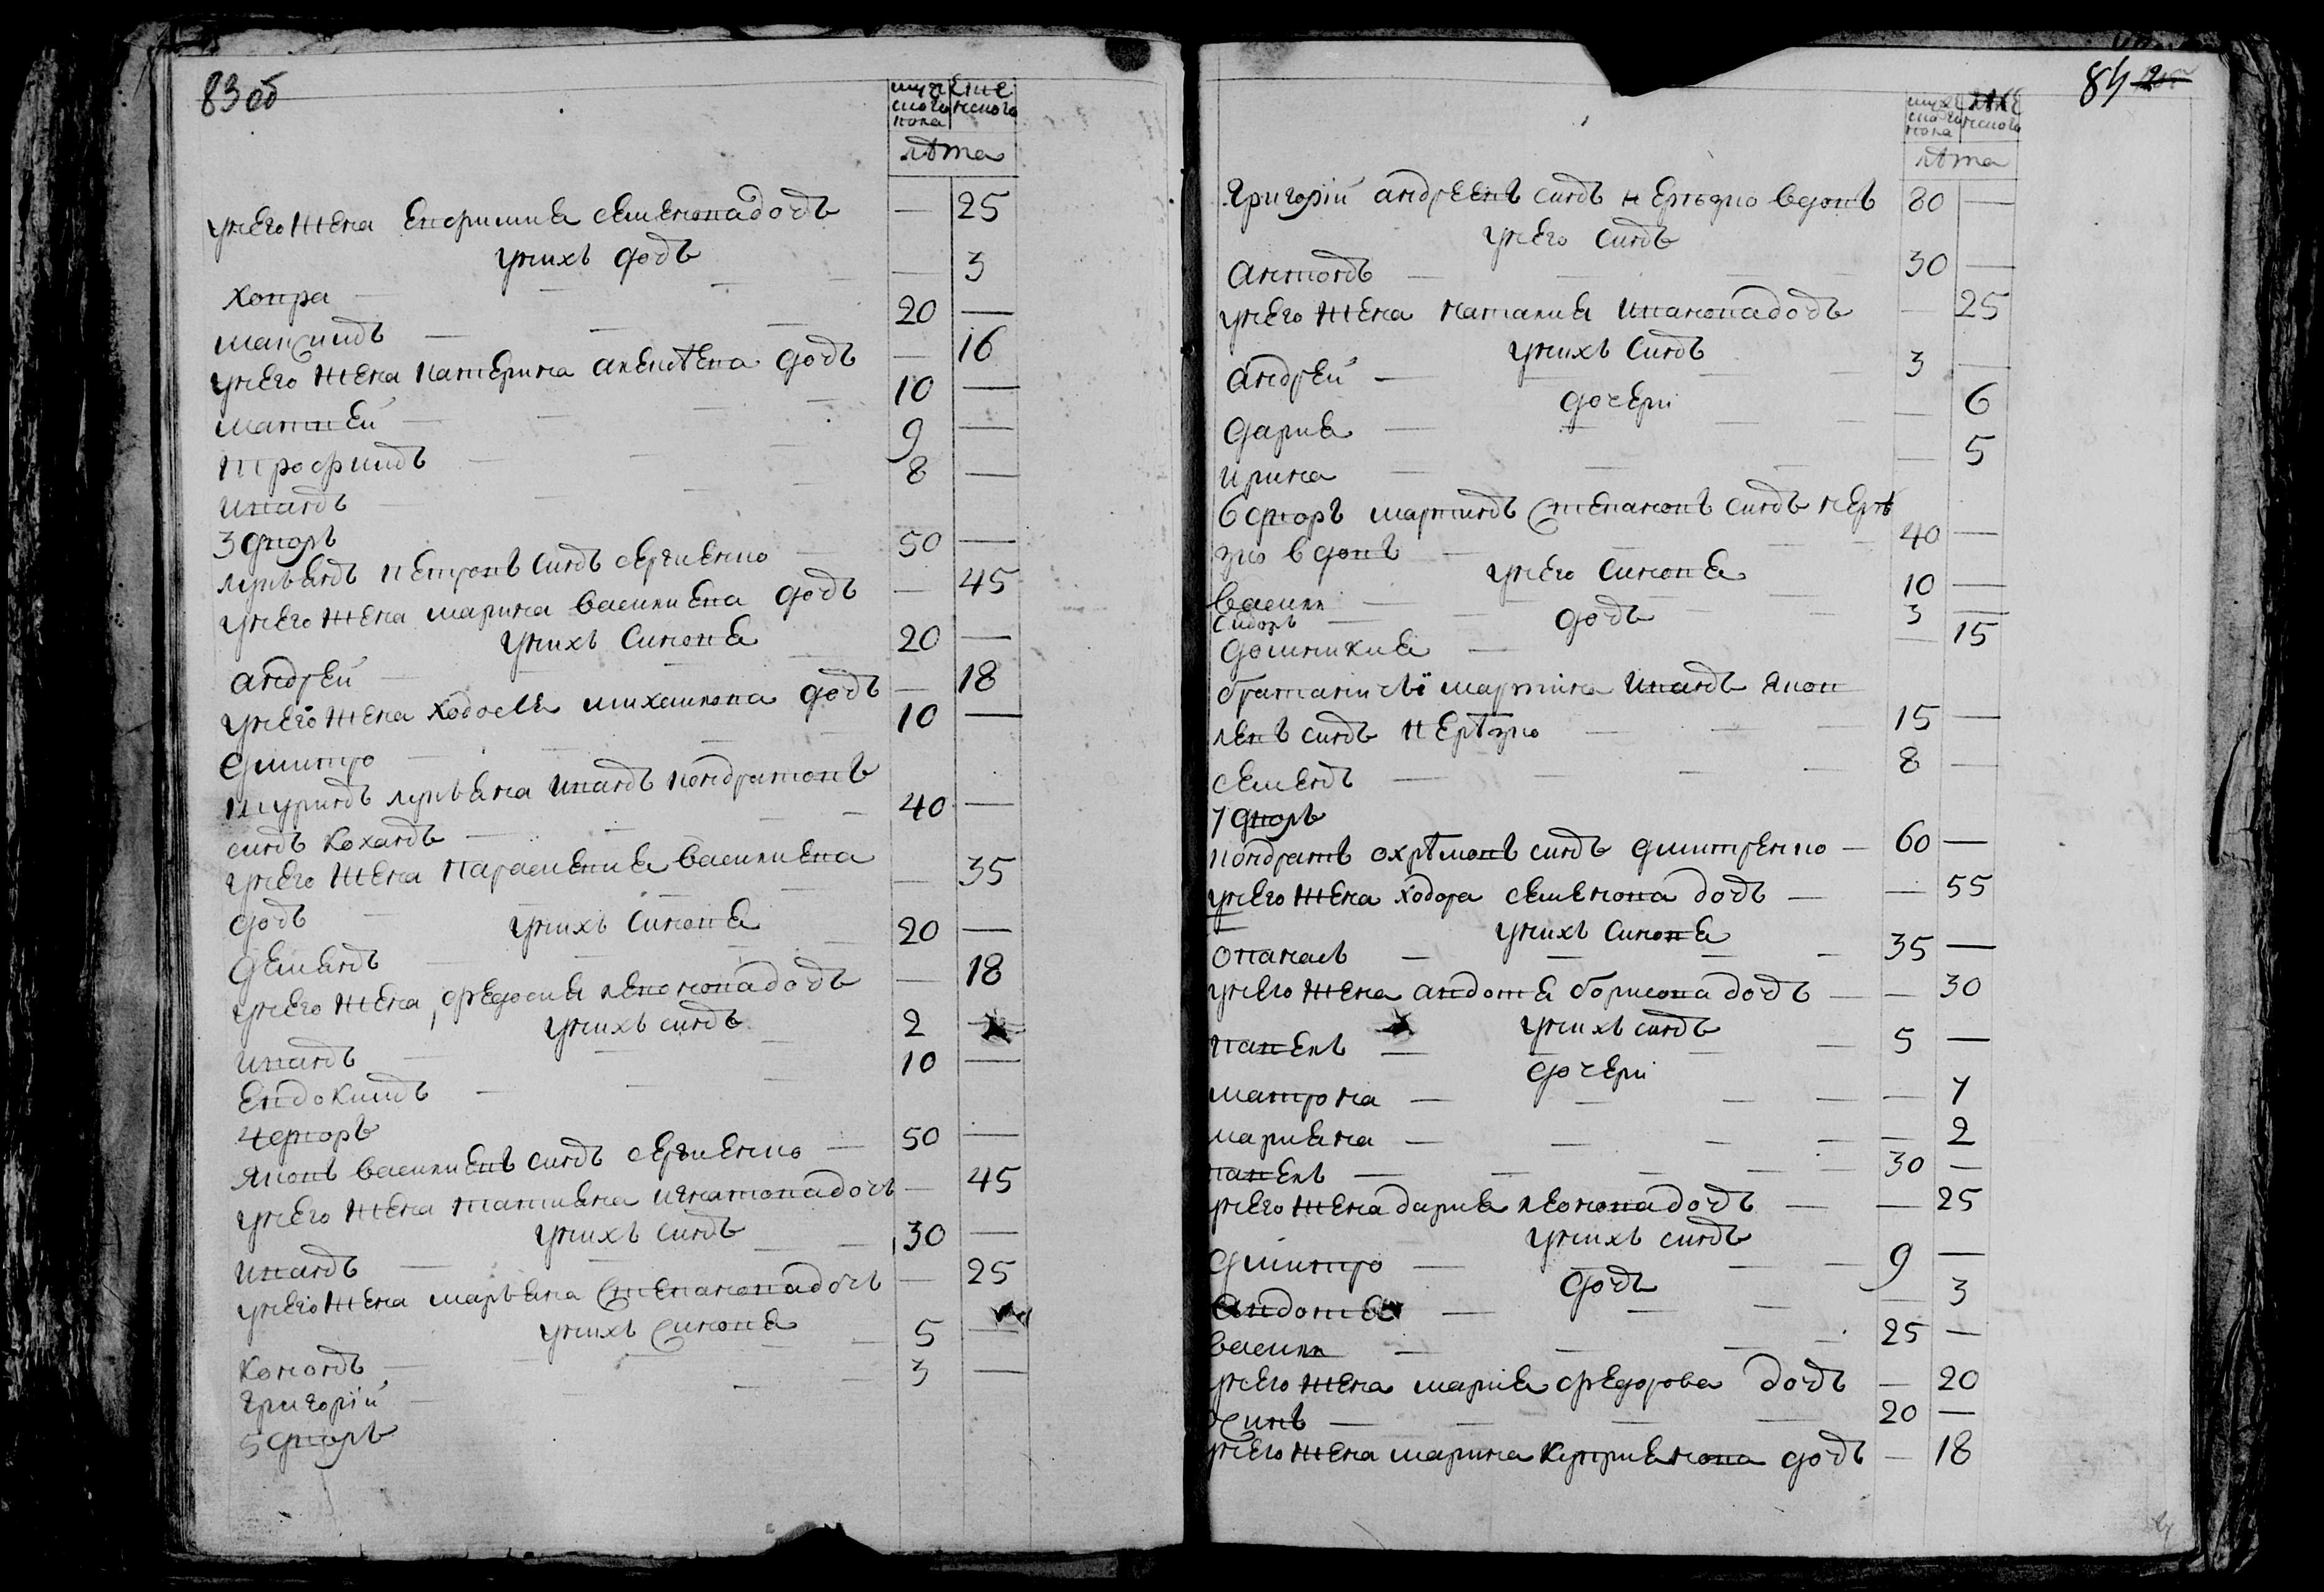 83об
мужскаго пола
женского
лѣта
у него жена Евфимия Семенова дочь — 25
у них дочь
Ховра — 3
Максимъ 20 —
у него жена Катерина Алексѣева дочь — 16
Матвей 10 —
Трофимъ 9 —
Иванъ 8 —
3 дворъ
Лукьянъ Петровъ сынъ Сергиенко 50 —
у него жена Марина Василиева дочь — 45
у нихъ синовя
Андрей 20 —
у него жена Ходося Михайлова дочь — 18
Дмитро 10 —
Шуринъ Лукьяна Иванъ Кондратовъ
синъ Коханъ 40 —
у него жена Парасковия Василиева
дочь — 35
у нихъ синовя
Демянъ 20 —
у него жена Федосия Левонова дочь — 18
у нихъ синъ
Иванъ 2 —
Евдокимъ 10 —
4 дворъ
Яковъ Василиевъ синъ Сергиенко 50 —
у него жена Татияна Игнатова дочь — 45
у нихъ синъ
Иванъ 30 —
у него жена Маръяна Степанова дочь — 25
у нихъ синовя
Кононъ 5 —
Григорій 3 —
5 дворъ
84
мужскаго пола
женского
лѣта
Григорій Андреевъ синъ Нерѣзко вдовъ 80 —
у него синъ
Антонъ 30 —
у него жена Наталия Иванова дочь — 25
у нихъ синъ
Андрей 3 —
дочери
Дария — 6
Ирина — 5
6 дворъ Мартинъ Степановъ синъ Нерѣ
зко вдовъ 40 —
у него синовя
Васили 10 —
Сидоръ 3 —
дочь
Домникия — 15
братаничъ Мартина Иванъ Яков
левъ синъ Нерѣзко 15 —
Семенъ 8 —
7 дворъ
Кондратъ Охрѣмовъ синъ Дмитренко 60 —
у него жена Ходора Семенова дочь — 55
у нихъ синовя
Опанасъ 35 —
у него жена Авдотя Борисова дочь — 30
у нихъ синъ
Павелъ 5 —
дочери
Матрона — 7
Марияна — 2
Павелъ 30 —
у него жена Дария Леонова дочь — 25
у нихъ синъ
Дмитро 9 —
дочь
Авдотя — 3
Васили 25 —
у него жена Мария Федорова дочь — 20
Осипъ 20 —
у него жена Марина Куприянова дочь — 18